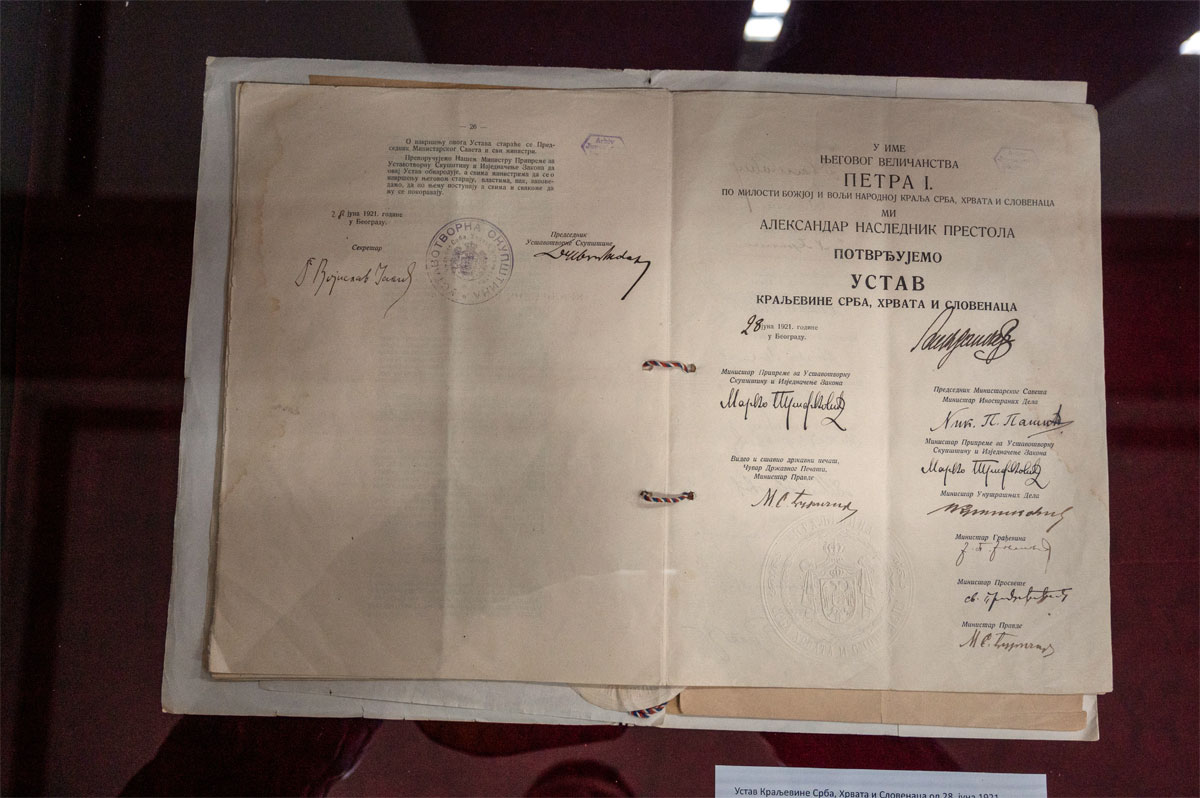 — 26 —
О извршењу овога Устава стараће се Пред-
седник Министарског Савета и сви министри.
Препоручујемо Нашем Министру Припреме за
Уставотворну Скупштину и Изједначење Закона да
овај Устав обнародује, а свима министрима да се о
извршењу његовом старају, властима, пак, запове-
дамо, да по њему поступају а свима и свакоме да
му се покоравају.
28 јуна 1921. године
у Београду.
Секретар
Председник
Уставотворне Скупштине,
УСТАВОТВОРНА СКУПШТИНА
У ИМЕ
ЊЕГОВОГ ВЕЛИЧАНСТВА
ПЕТРА I.
ПО МИЛОСТИ БОЖЈОЈ И ВОЉИ НАРОДНОЈ КРАЉА СРБА, ХРВАТА И СЛОВЕНАЦА
МИ
АЛЕКСАНДАР НАСЛЕДНИК ПРЕСТОЛА
ПОТВРЂУЈЕМО
УСТАВ
КРАЉЕВИНЕ СРБА, ХРВАТА И СЛОВЕНАЦА
28 јуна 1921. године
у Београду.
Министар Припреме за Уставотворну
Скупштину и Изједначење Закона
Марко Трифковић
Видео и ставио државни печат,
Чувар Државног Печата,
Министар Правде
М. С. Ђуричић
Председник Министарског Савета
Министар Иностраних Дела
Ник. П. Пашић
Министар Припреме за Уставотворну
Скупштину и Изједначење Закона
Марко Трифковић
Министар Унутрашњих Дела
Министар Грађевина
Министар Просвете
Министар Правде
М. С. Ђуричић
Устав Краљевине Срба, Хрвата и Словенаца од 28. јуна 1921.